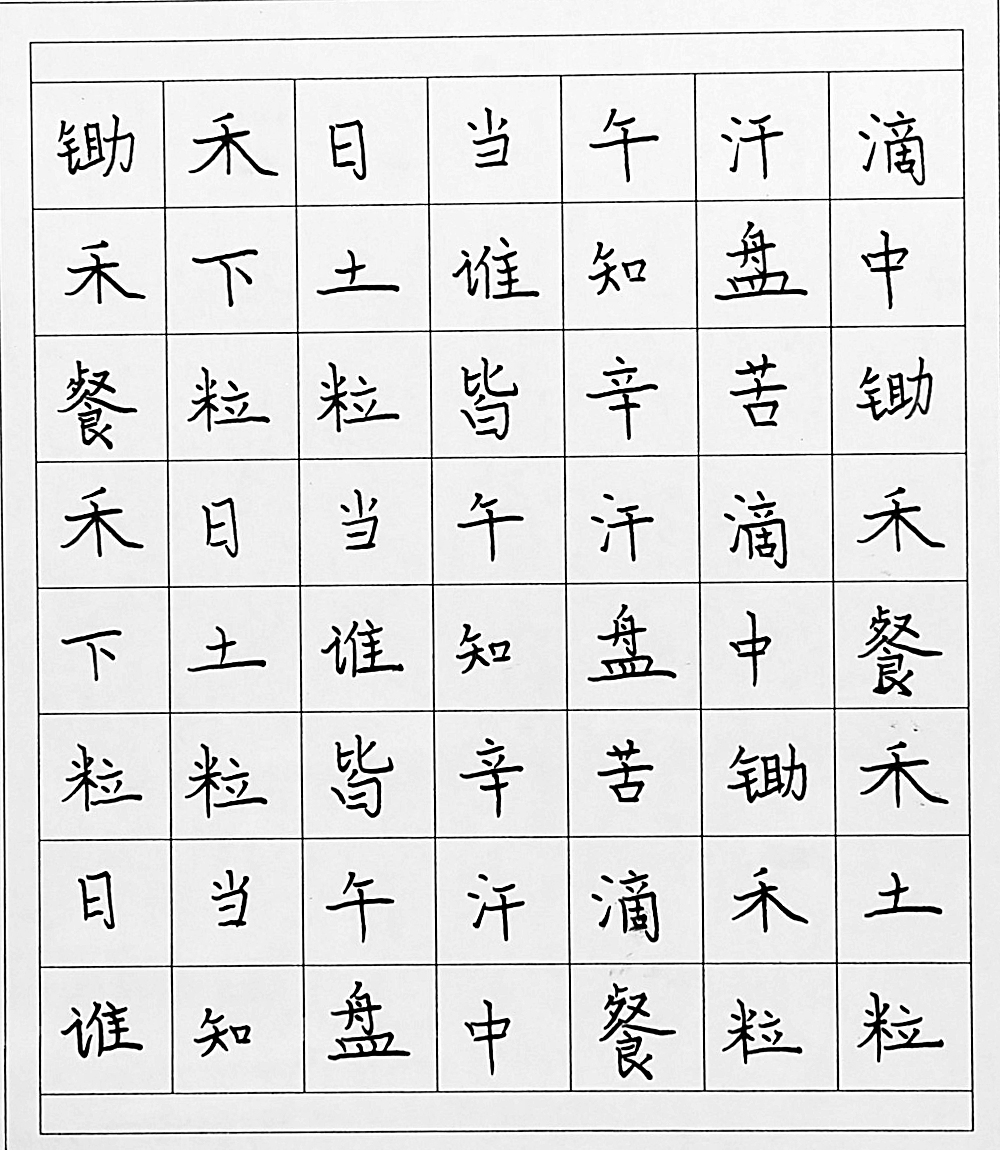 锄禾日当午汗滴
禾下土谁知盘中
餐粒粒皆辛苦锄
禾日当午汗滴禾
下土谁知盘中餐
粒粒皆辛苦锄禾
日当午汗滴禾土
谁知盘中餐粒粒